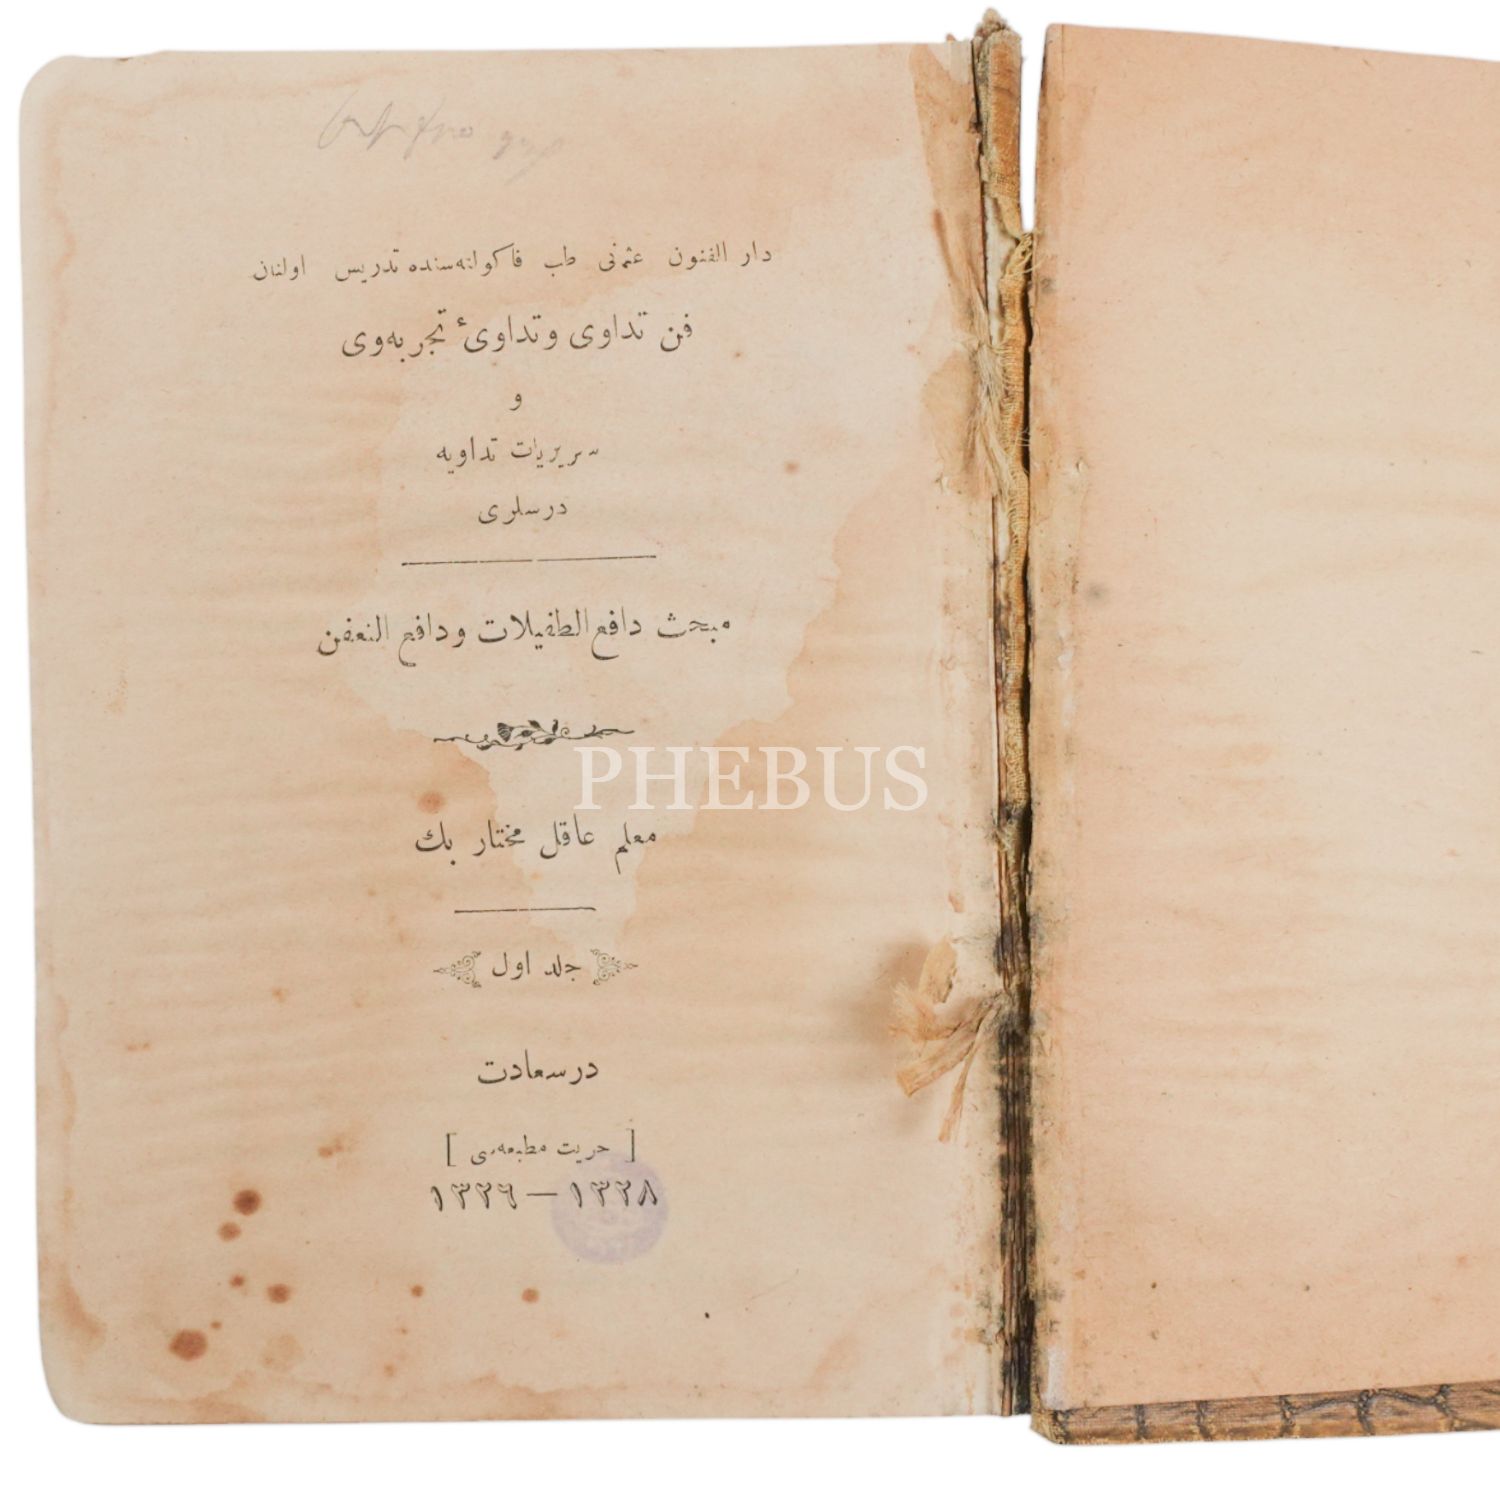 دار الفنون عثمانی طب فاکولته‌سنده تدریس اولنان
فن تداوی و تداوئ تجربه‌وی
و
سریریات تداویه
درسلری
مبحث دافع الطفیلات ودافع التعفن
PHEBUS
معلم عاقل مختار بك
جلد اول
درسعادت
[ حریت مطبعه‌سی ]
١٣٢٨ — ١٣٢٦